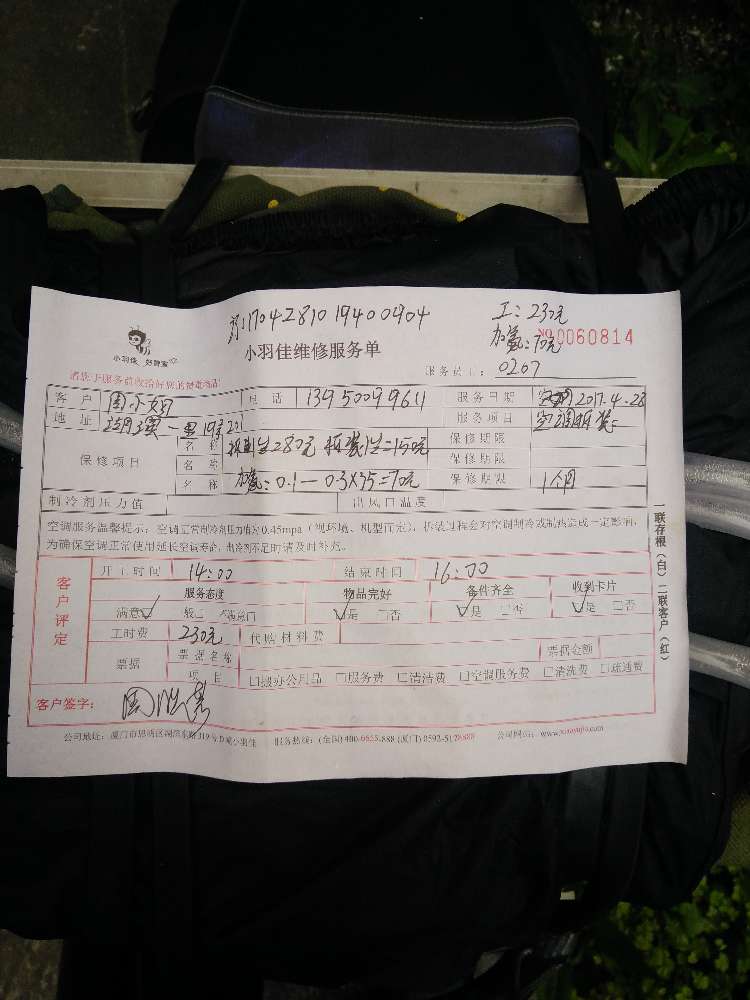 170428101940 0904
工：230元
加氨：70元
小羽佳 好管家
小羽佳维修服务单
NO 0060814
服务员工：0207
客户 周小姐 电话 13950099611 服务日期 2017.4.28
地址 一里19号201 服务项目 空调拆装
保修项目 名称 280元 拆装 150元 保修期限
名称 保修期限
名称 加氨：0.1—0.3X35=70元 保修期限 1个月
制冷剂压力值 出风口温度
空调服务温馨提示：空调正常制冷剂压力值为0.45mpa（视环境、机型而定），拆装过程会对空调制冷或制热造成一定影响，
为确保空调正常使用延长空调寿命，制冷剂不足时请及时补充。
客户评定
开工时间 14:00 结束时间 16:00
服务态度 物品完好 备件齐全 收到卡片
满意 一般 不满意 是 否 是 否 是 否
工时费 230元 代购材料费
票据 票据名称 票据金额
项目 搬办公用品 服务费 清洁费 空调服务费 清洗费 疏通费
客户签字：
公司地址：厦门市思明区 319号 小羽佳 服务热线：(全国)400-6655-888 (厦门)0592-5128888 公司网站：www.xiaoyujia.com
一联存根（白）二联客户（红）